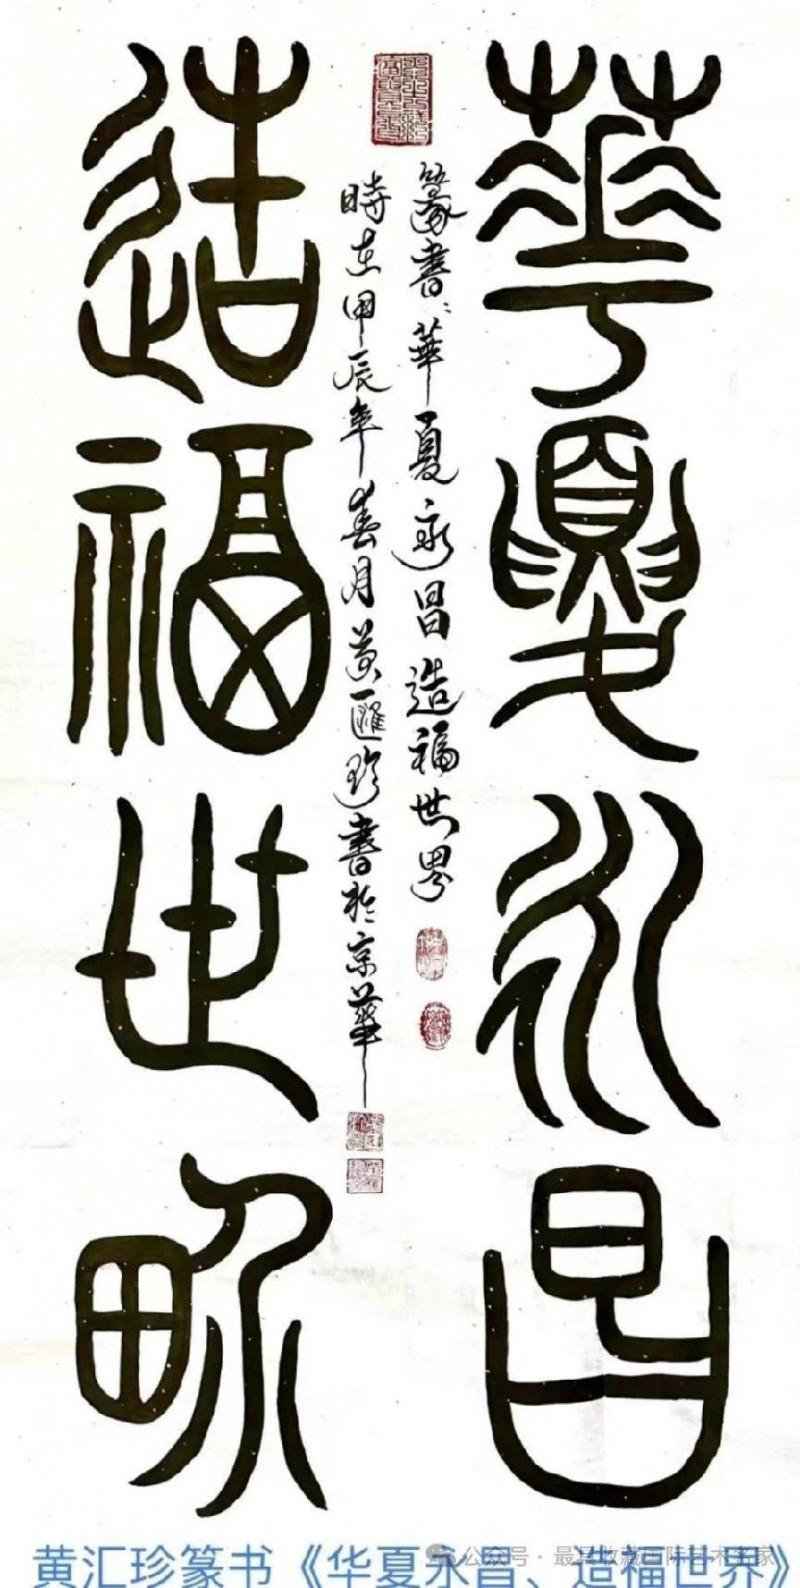 華夏永昌
篆書：華夏永昌造福世界
時在甲辰年春月黃匯珍書於京華
造福世界
黄汇珍篆书《华夏永昌、造福世界》
公众号·最具收藏国际艺术名家